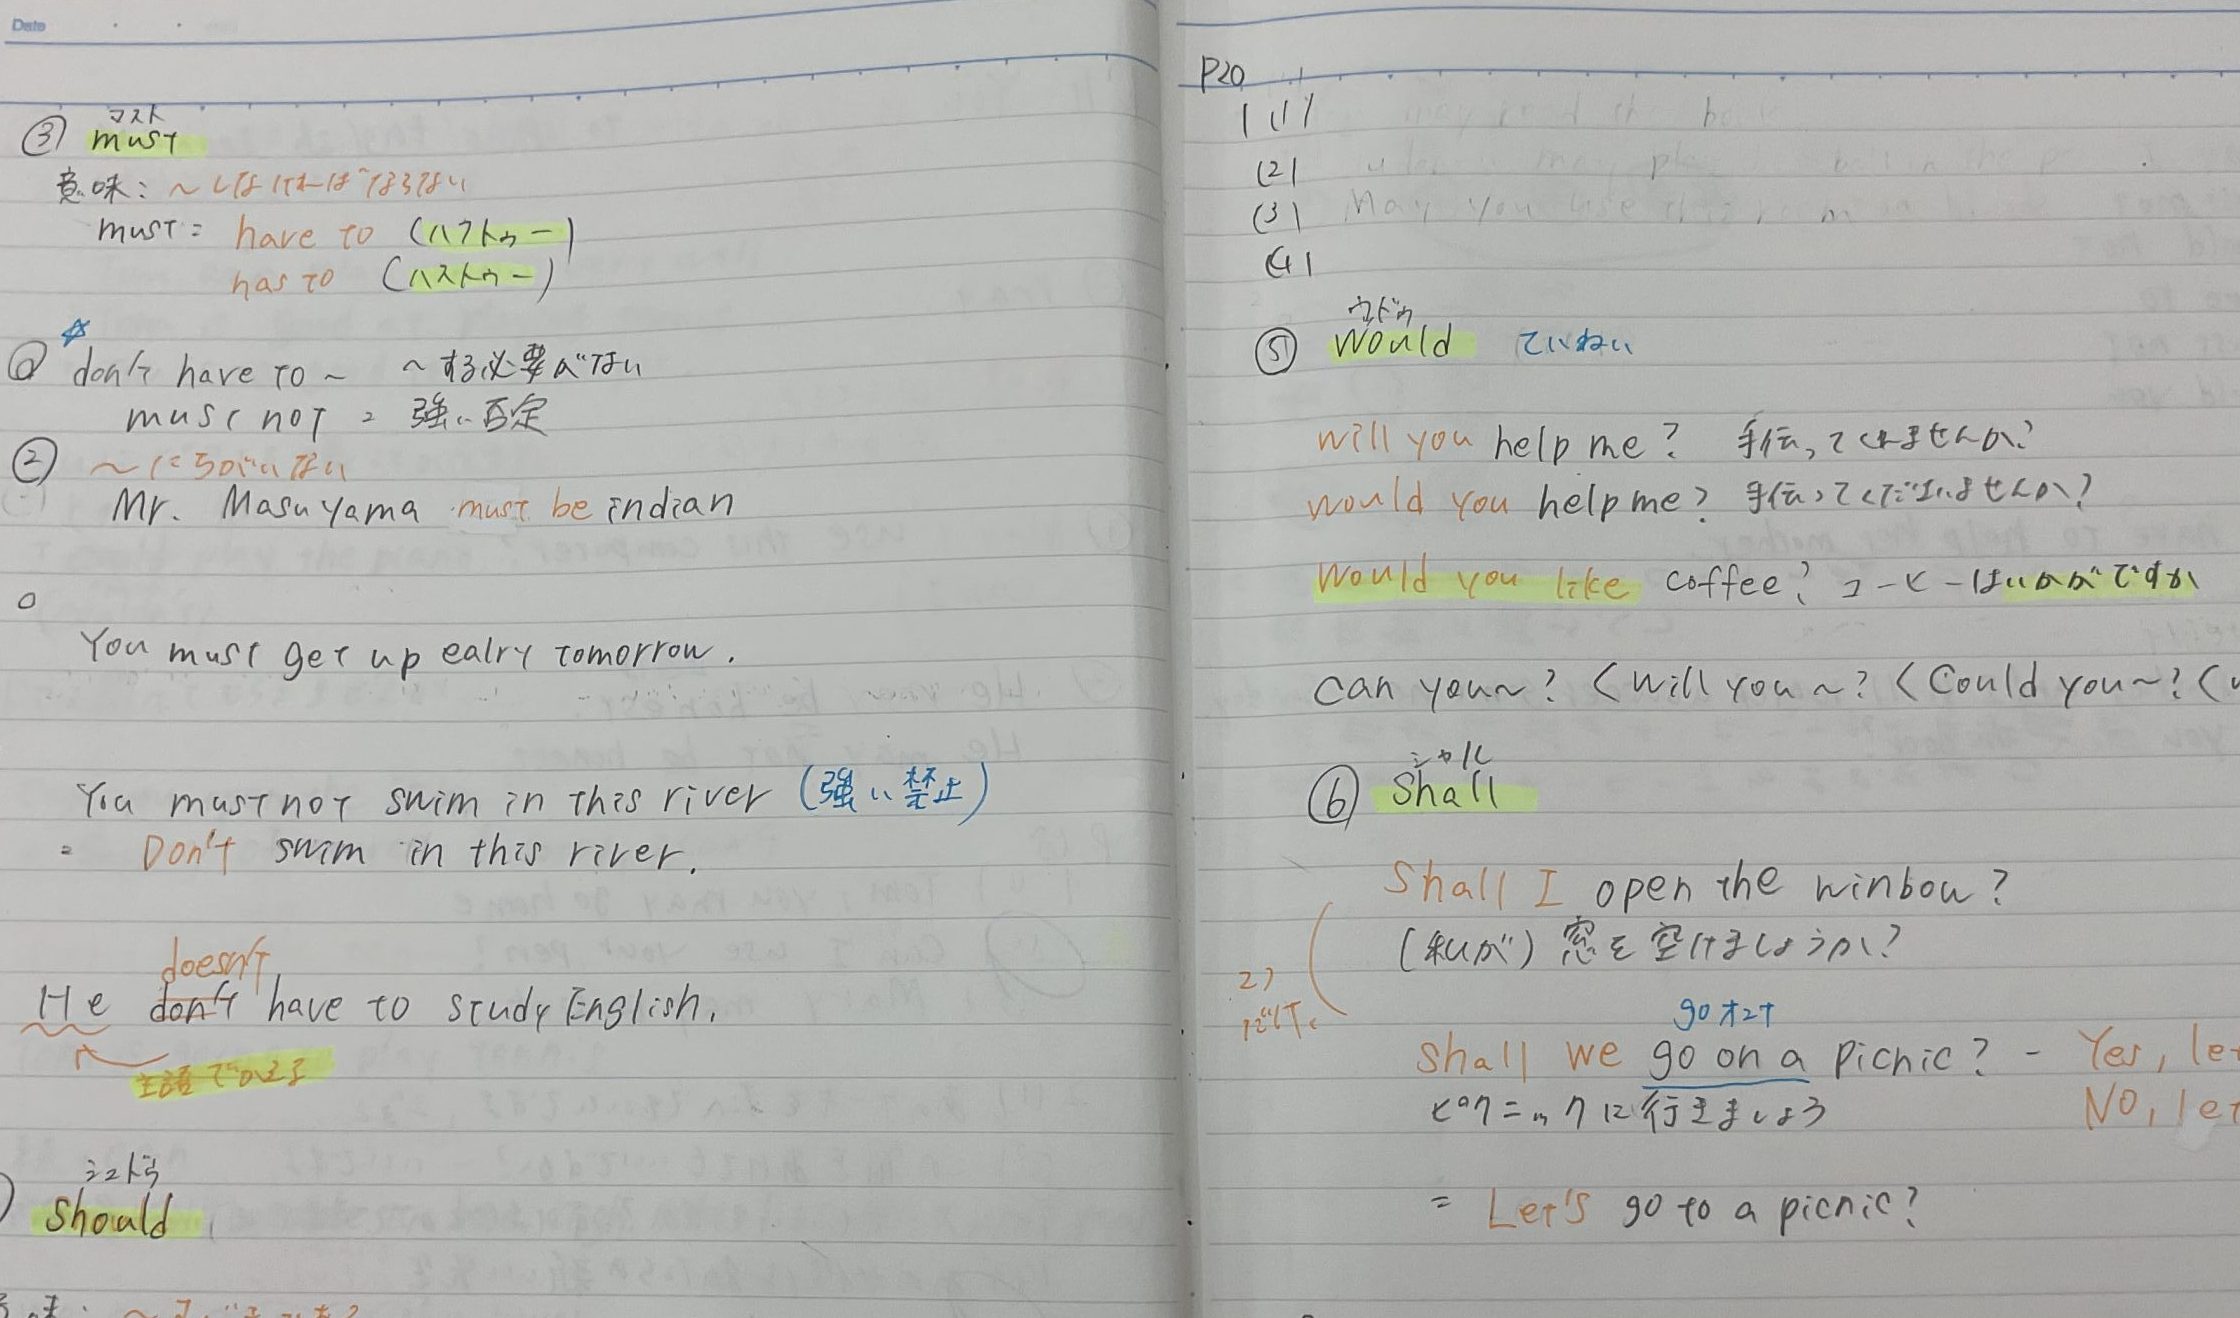 Date
マスト
③ must
意味: ~しなければならない
must = have to (ハフトゥー)
has to (ハストゥー)
☆
don't have to ~ ~する必要がない
must not = 強い否定
② ~にちがいない
Mr. Masuyama must be indian
You must get up ealry tomorrow.
You must not swim in this river (強い禁止)
= Don't swim in this river.
doesn't
He don't have to study English.
主語でかえる
シュドゥ
should
P20
1 (1)
(2)
(3) May you use this
(4)
ウドゥ
⑤ would ていねい
will you help me? 手伝ってくれませんか?
would you help me? 手伝ってくださいませんか?
Would you like coffee? コーヒーはいかがですか
can you~? < will you~? < Could you~? <
シャル
⑥ Shall
Shall I open the winbow?
(私が) 窓を空けましょうか?
go オンナ
Shall we go on a picnic? - Yes, le
ピクニックに行きましょう NO, let
= Let's go to a picnic?